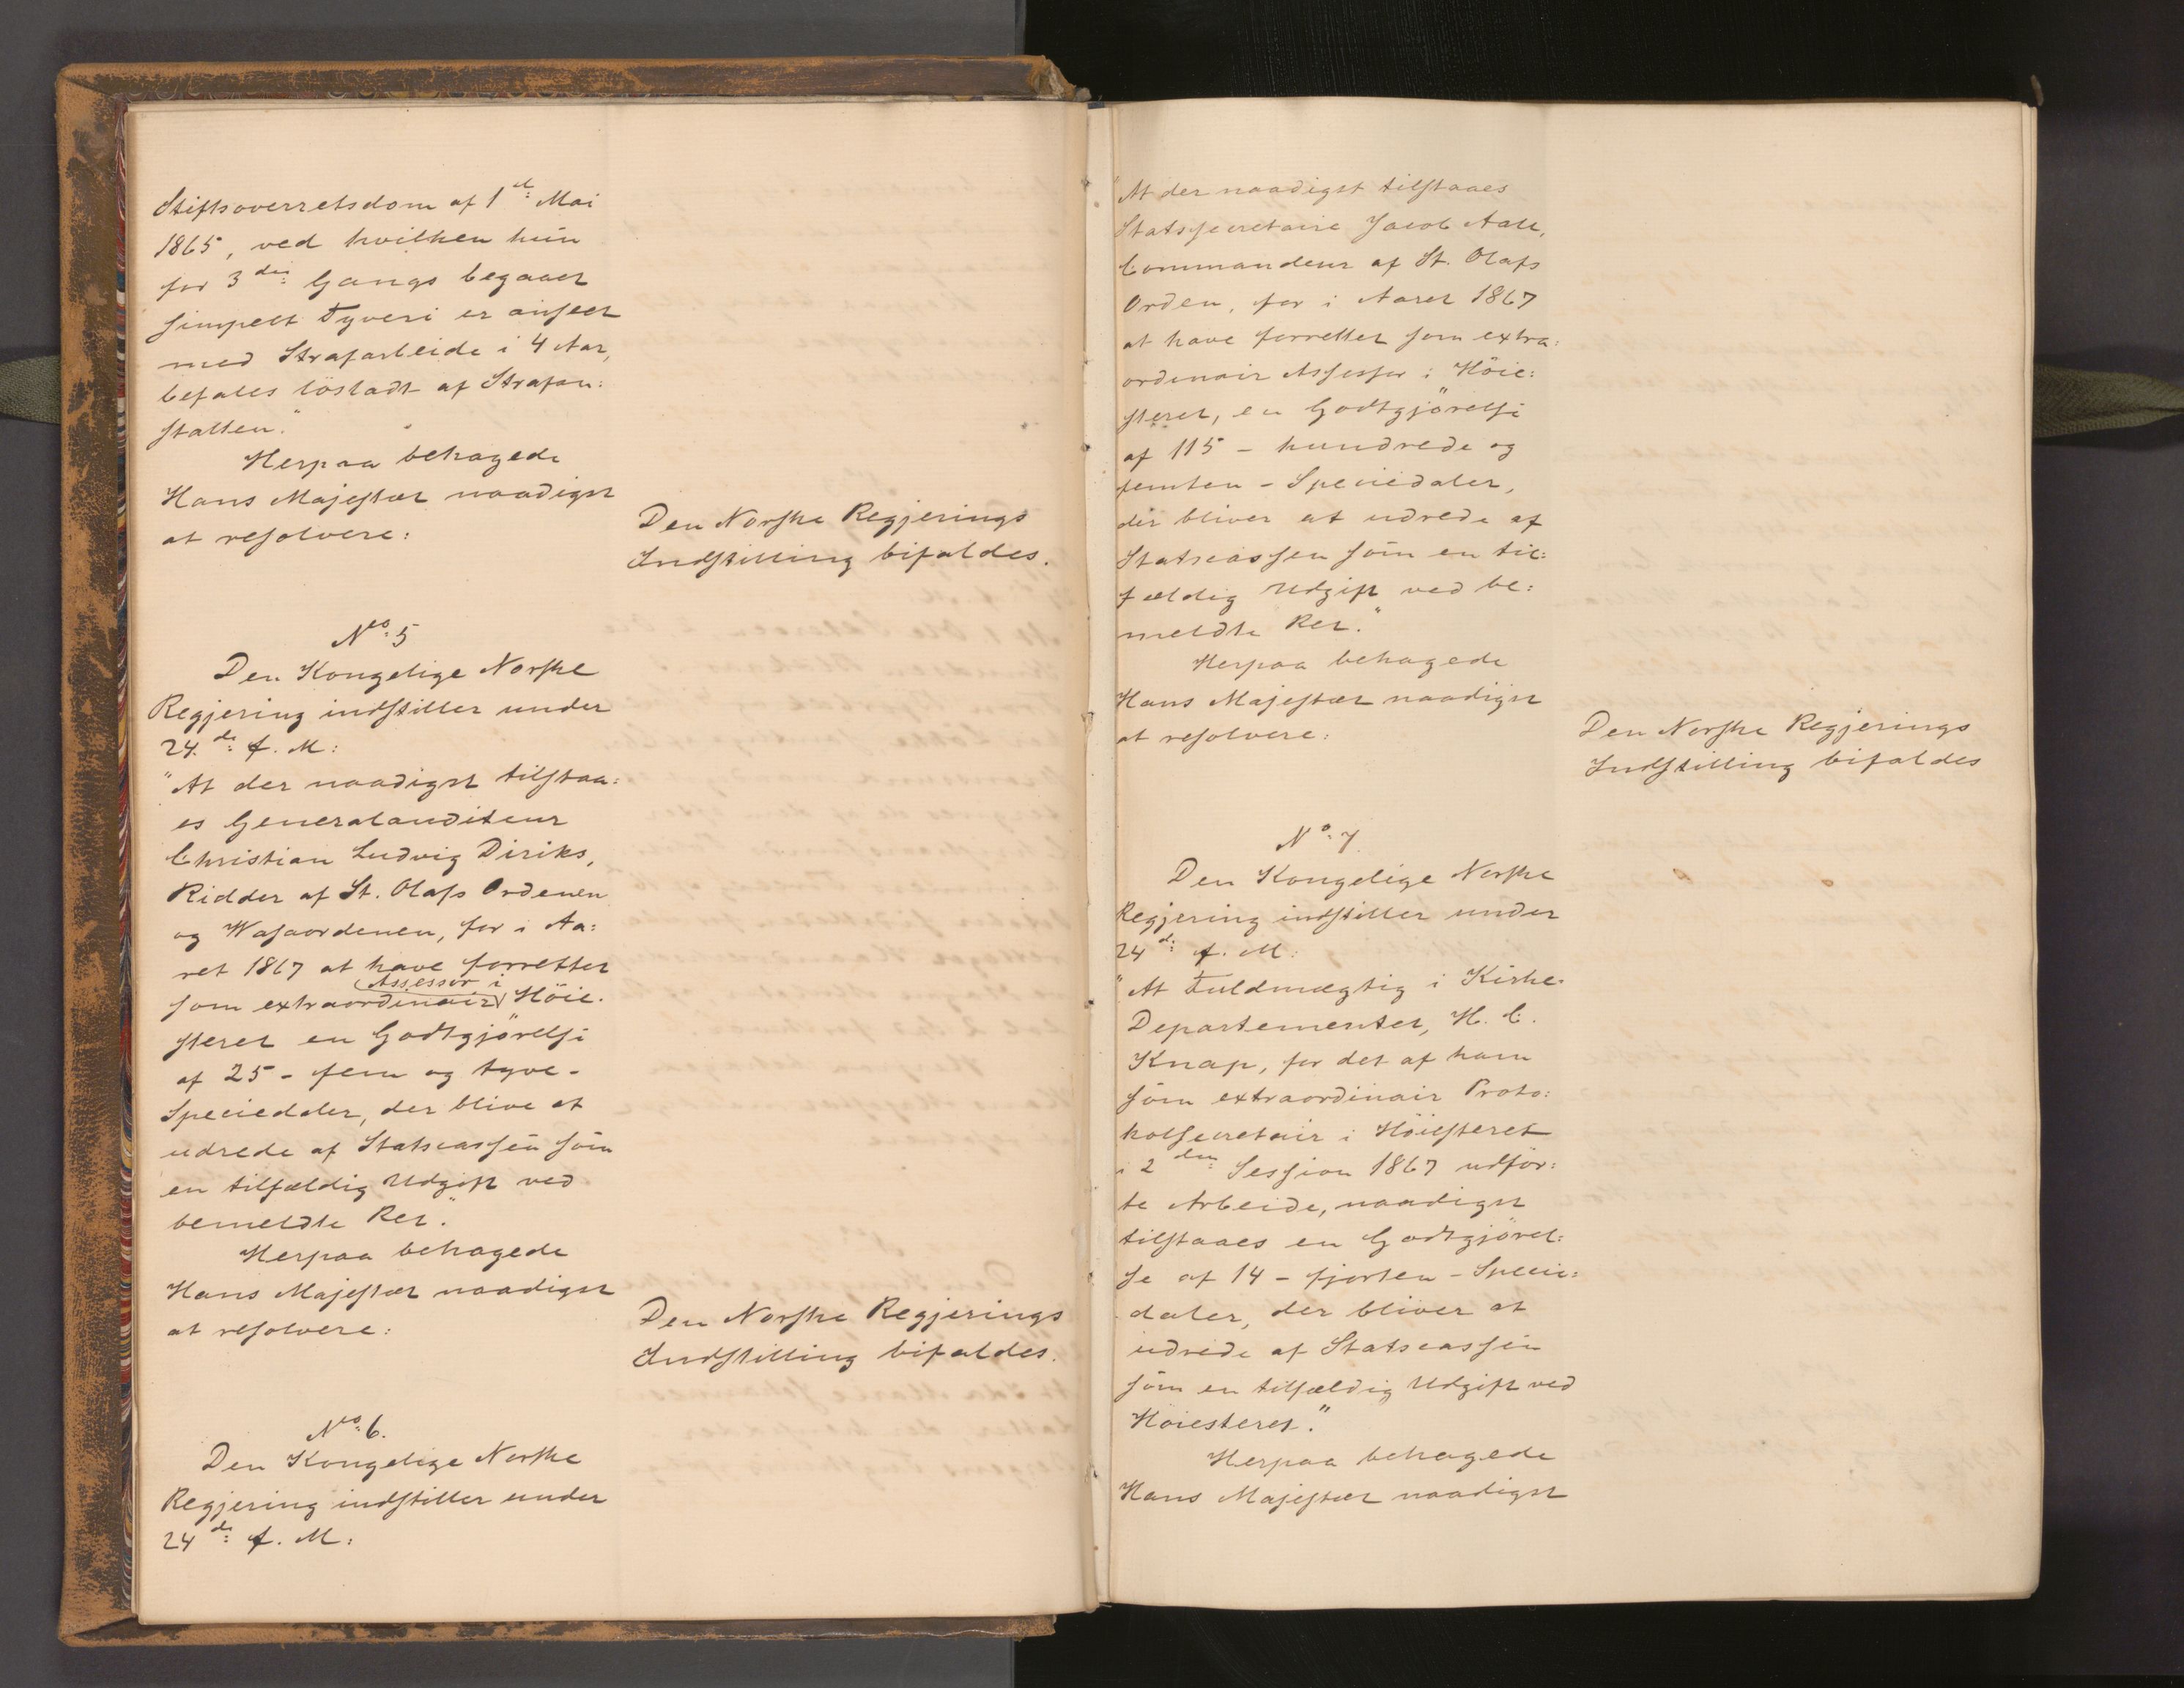 Stiftsoverretsdom af 1ste: Mai
1865, ved hvilken hun
for 3die: Gangs begaaet
simpelt Tyveri er anseet
med Strafarbeide i 4 Aar,
befales løsladt af Strafan:
stalten."
Herpaa behagede
Hans Majestæt naadigst
at resolvere:
Den Norske Regjerings
Indstilling bifaldes.
No: 5
Den Kongelige Norske
Regjering indstiller under
24.de: f. M:
"At der naadigst tilstaa:
es Generalauditeur
Christian Ludvig Diriks,
Ridder af St. Olafs Ordenen
og Wasaordenen, for i Aa:
ret 1867 at have forrettet
som extraordinair Assessor i Höie:
steret en Godtgjörelse
af 25 - fem og tyve -
Speciedaler, der blive at
udrede af Statscassen som
en tilfældig Udgift ved
bemeldte Ret."
Herpaa behagede
Hans Majestæt naadigst
at resolvere:
Den Norske Regjerings
Indstilling bifaldes.
No: 6.
Den Kongelige Norske
Regjering indstiller under
24de: f. M:
"At der naadigst tilstaaes
Statssecretaire Jacob Aall,
Commandeur af St. Olafs
Orden, for i Aaret 1867
at have forrettet som extra:
ordinair Assessor i Höie:
steret, en Godtgjörelse
af 115 - hundrede og
femten - Speciedaler,
der bliver at udrede af
Statscassen som en til:
fældig Udgift ved be:
meldte Ret."
Herpaa behagede
Hans Majestæt naadigst
at resolvere:
Den Norske Regjerings
Indstilling bifaldes
No: 7.
Den Kongelige Norske
Regjering indstiller under
24d: f. M:
"At Fuldmægtig i Kirke-
Departementet, H. C.
Knap, for det af ham
som extraordinair Proto:
kolsecretair i Höiesteret
i 2den: Session 1867 udför:
te Arbeide, naadigst
tilstaaes en Godtgjörel:
se af 14 - fjorten - Specie:
daler, der bliver at
udrede af Statscassen
som en tilfældig Udgift ved
Höiesteret."
Herpaa behagede
Hans Majestæt naadigst